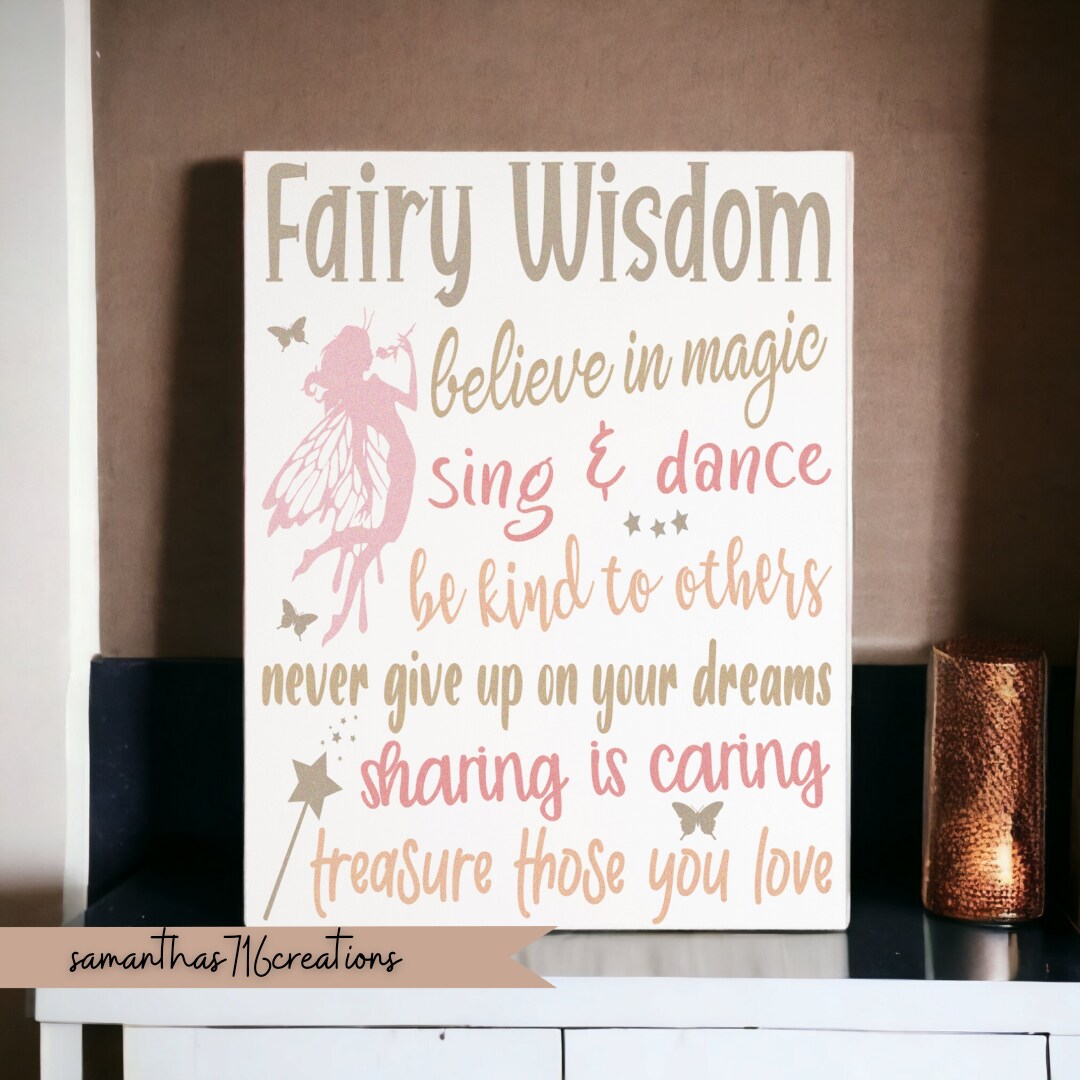 Fairy Wisdom
believe in magic
sing & dance
be kind to others
never give up on your dreams
sharing is caring
treasure those you love
samanthas716creations